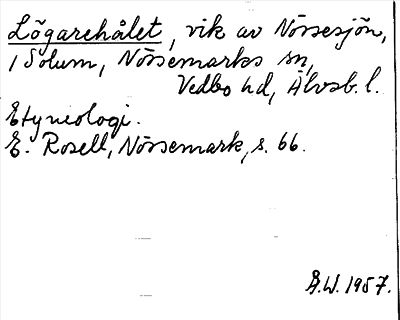 Lögarehålet, vik av Nössesjön,
i Solum, Nössemarks sn,
Vedbo hd, Älvsb. l.
Etymologi.
E. Rosell, Nössemark, s. 66.
A.W. 1957.